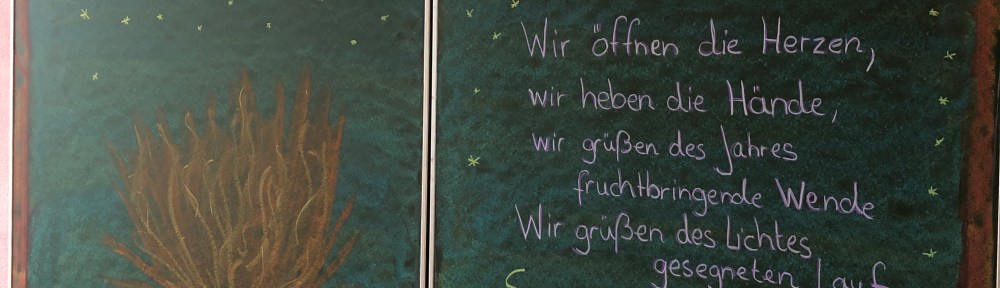 Wir öffnen die Herzen,
wir heben die Hände,
wir grüßen des Jahres
fruchtbringende Wende
Wir grüßen des Lichtes
gesegneten Lauf